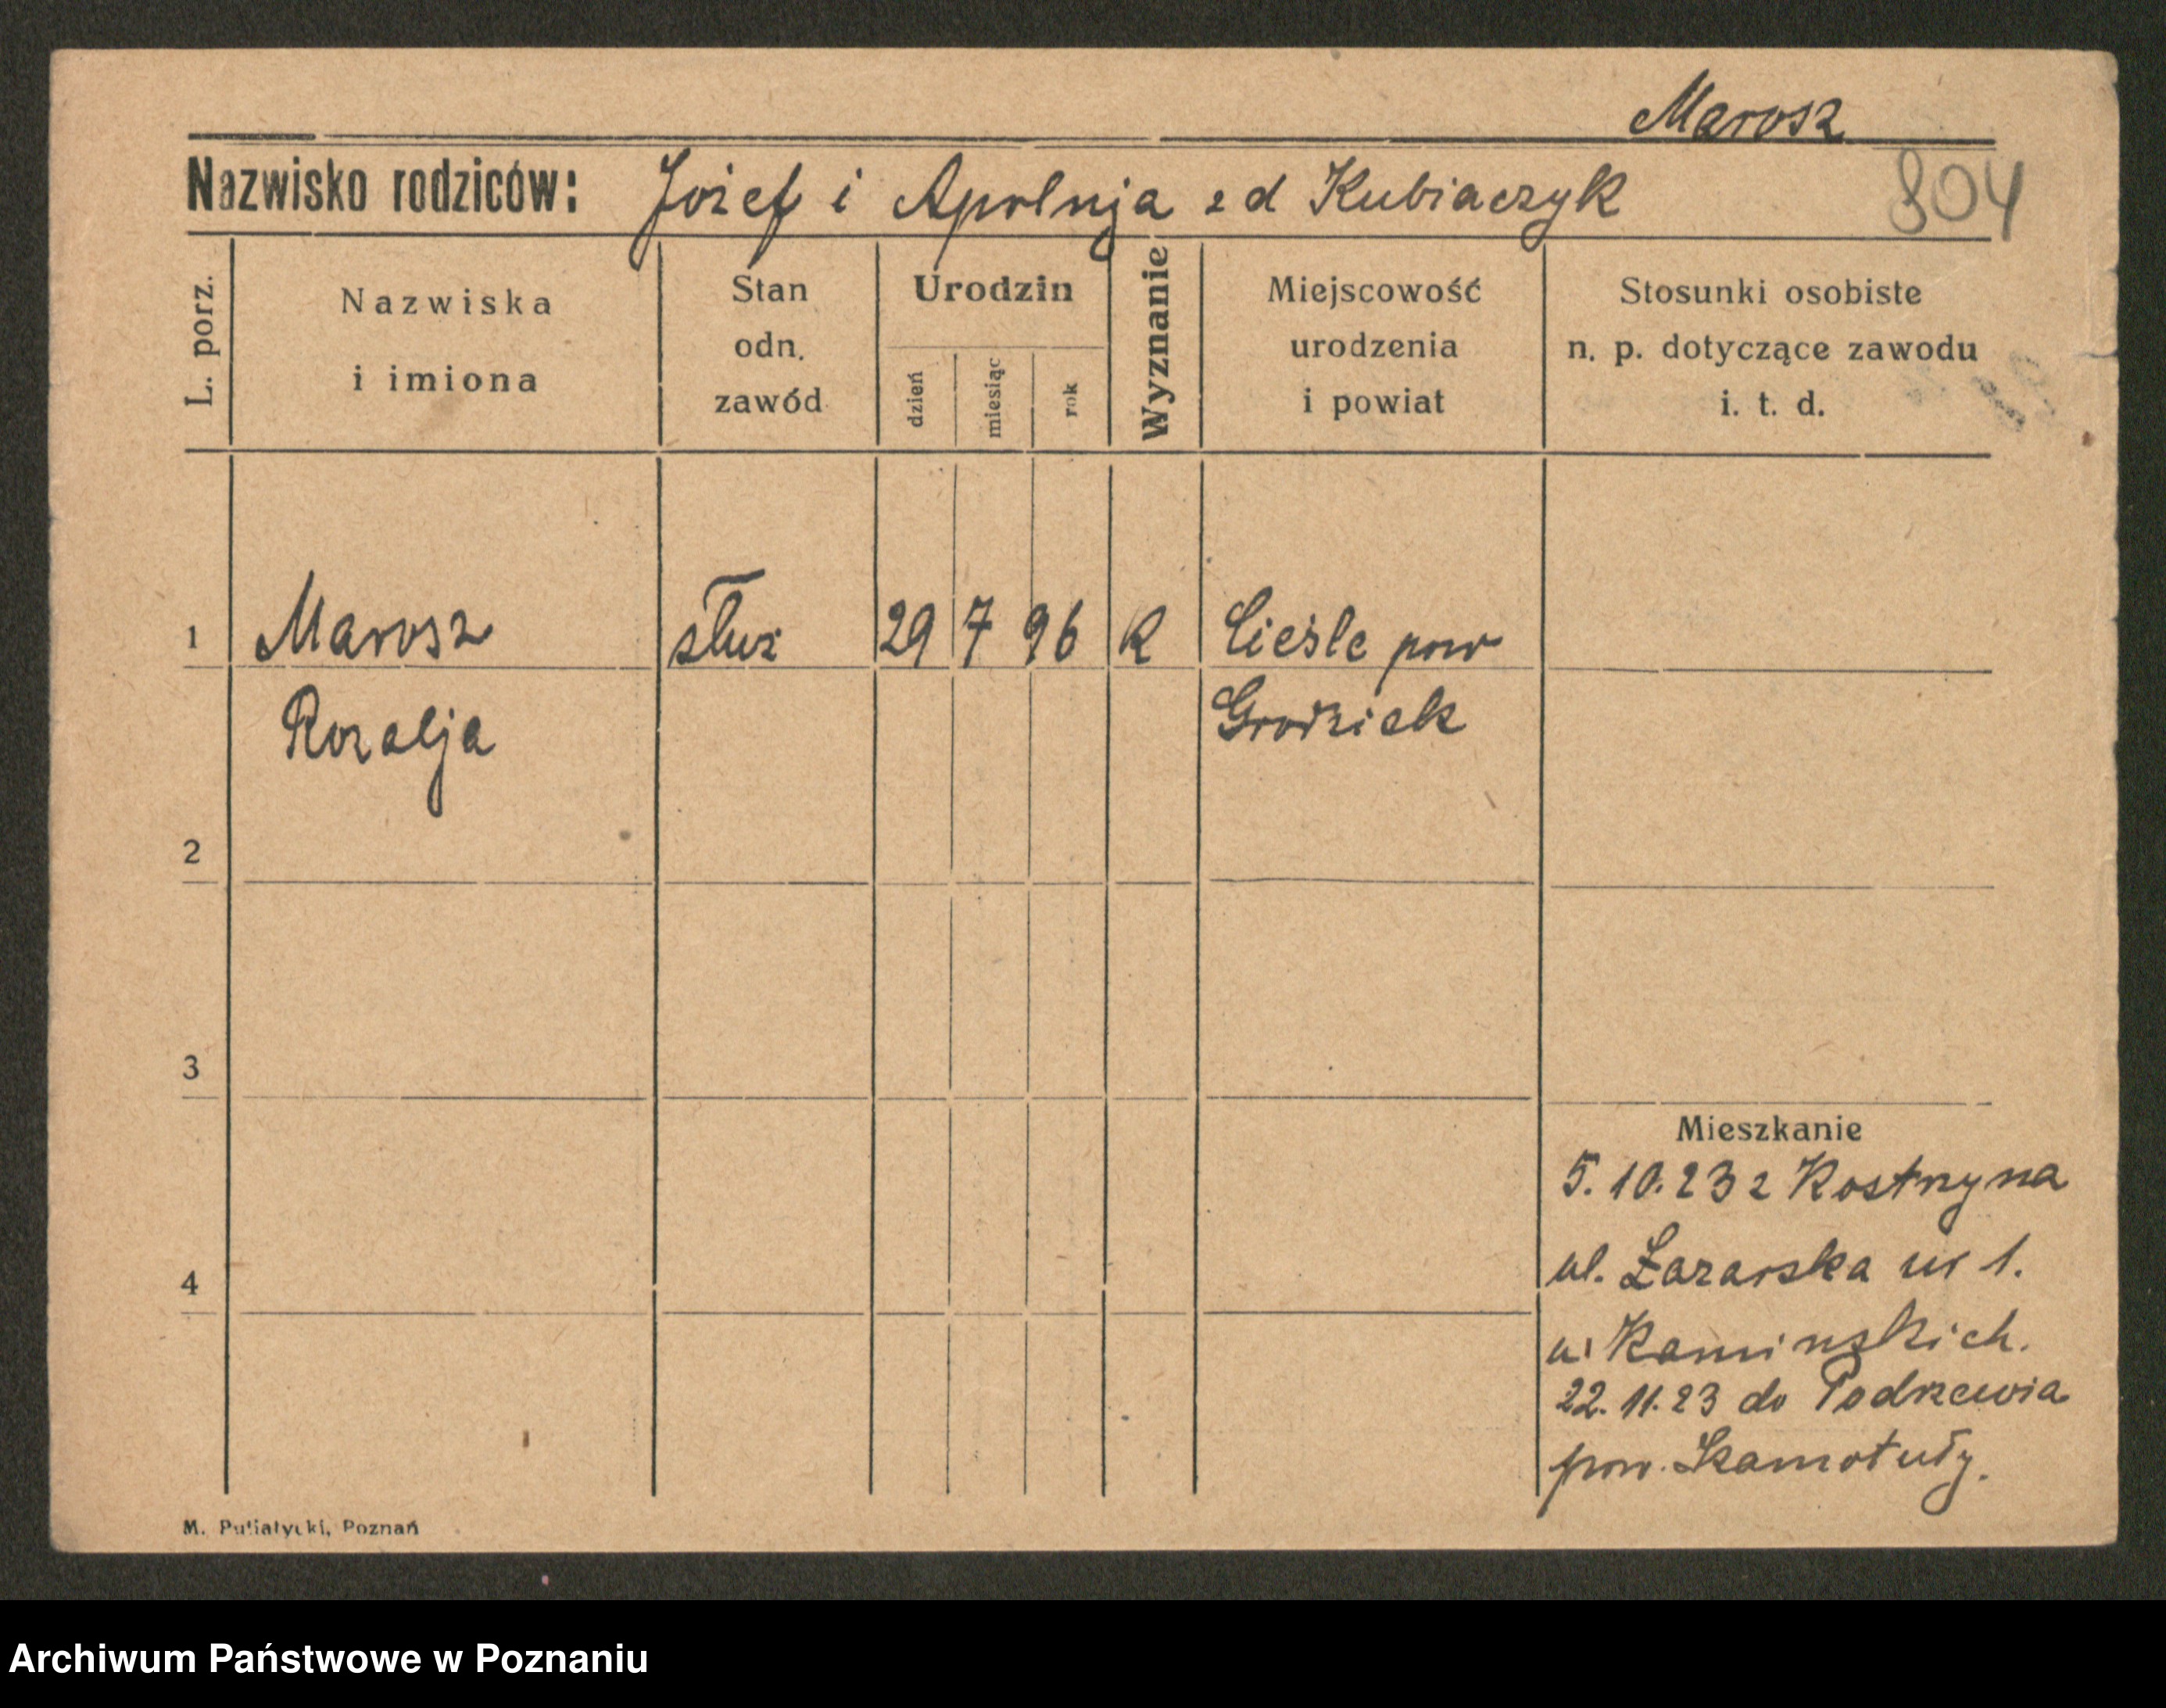 Marosz
Nazwisko rodziców: Józef i Apolnja z d Kubiaczyk
804
L. porz.
Nazwiska
i imiona
Stan
odn.
zawód
Urodzin
dzień
miesiąc
rok
Wyznanie
Miejscowość
urodzenia
i powiat
Stosunki osobiste
n. p. dotyczące zawodu
i. t. d.
1 Marosz służ 29 7 96 k Cieśle pow
Rozalja Grodzisk
2
3
Mieszkanie
5.10.23 z Kostrzyna
4
ul. Łazarska nr 1.
u Kaminskich.
22.11.23 do Podrzewia
pow. Szamotuły.
M. Putiatycki, Poznań
Archiwum Państwowe w Poznaniu